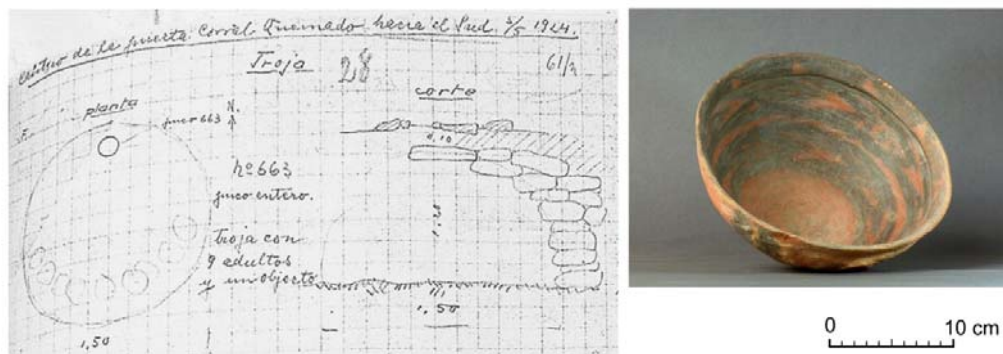 de la puerta Corral Quemado hacia el Sud. 3/5 1924.
Troja 28 61/2
planta
corte
N.
puco 663
0,10
nº 663
puco entero.
troja con
9 adultos
y un objecto
1,20
1,50
1,50
0 10 cm